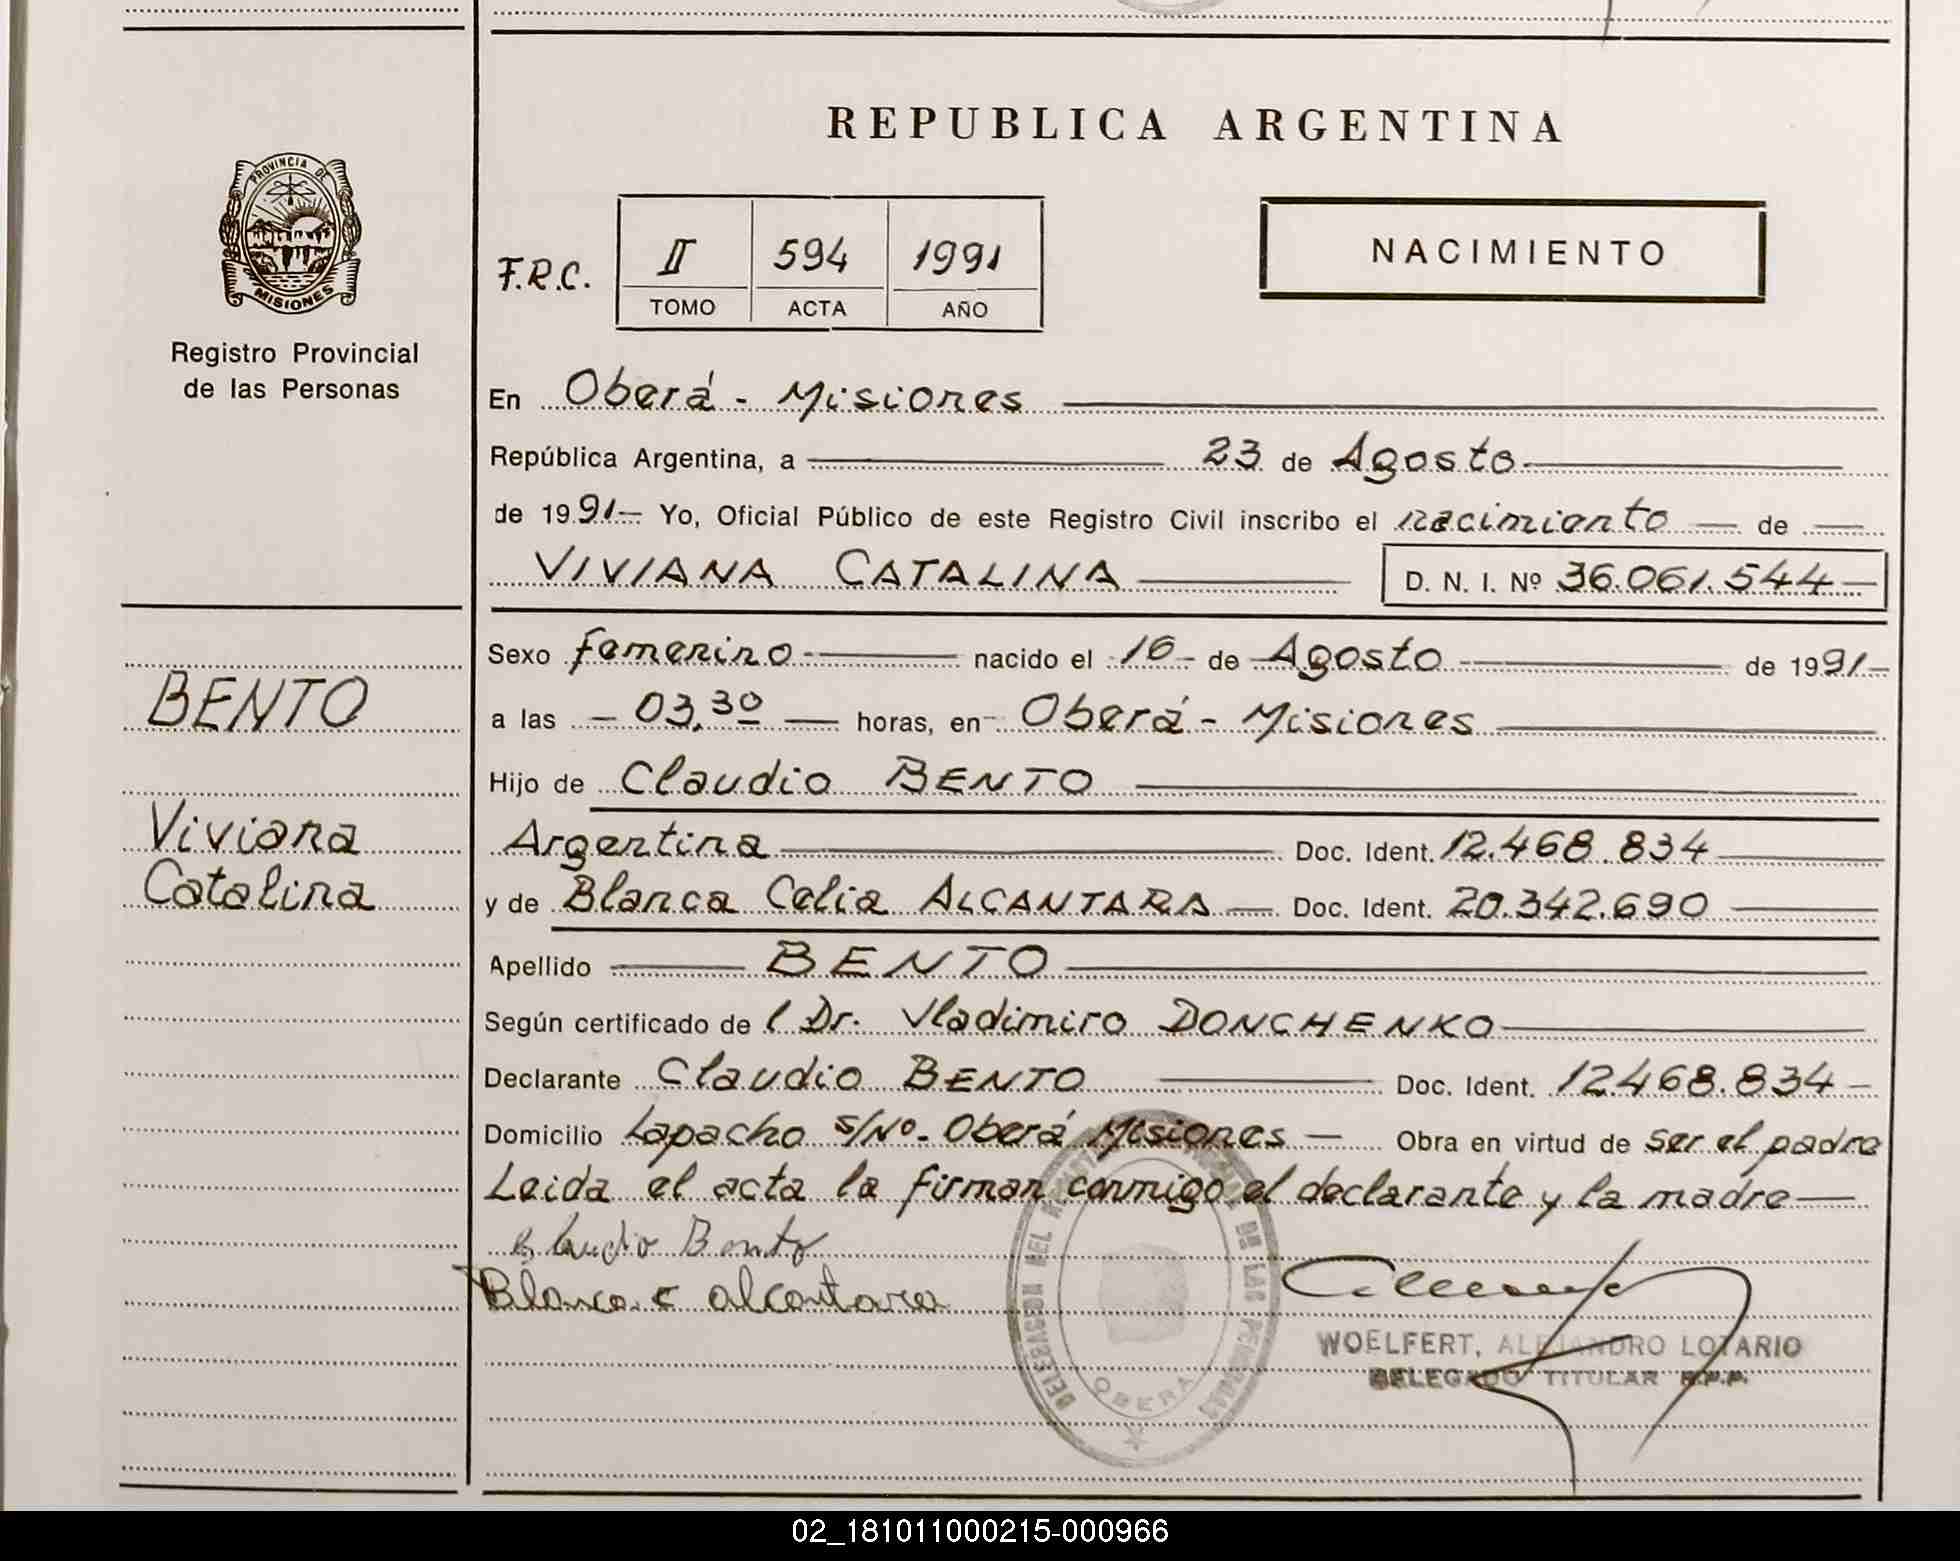 REPUBLICA ARGENTINA
PROVINCIA DE
MISIONES
Registro Provincial
de las Personas
F.R.C.
II 594 1991
TOMO ACTA AÑO
NACIMIENTO
En Oberá - Misiones
República Argentina, a 23 de Agosto
de 1991 Yo, Oficial Público de este Registro Civil inscribo el nacimiento de
VIVIANA CATALINA D. N. I. Nº 36.061.544
Sexo femenino nacido el 16 de Agosto de 1991
BENTO
a las 03,30 horas, en Oberá - Misiones
Hijo de Claudio BENTO
Viviana
Catalina
Argentina Doc. Ident. 12.468.834
y de Blanca Celia ALCANTARA Doc. Ident. 20.342.690
Apellido BENTO
Según certificado de l Dr. Vladimiro DONCHENKO
Declarante Claudio BENTO Doc. Ident. 12.468.834
Domicilio Lapacho s/Nº. Oberá Misiones Obra en virtud de ser el padre
Leida el acta la firman conmigo el declarante y la madre
Claudio Bento
Blanca C alcantara
WOELFERT, ALEJANDRO LOTARIO
DELEGADO TITULAR R.P.P.
DE LAS PERSONAS
OBERA
02_181011000215-000966